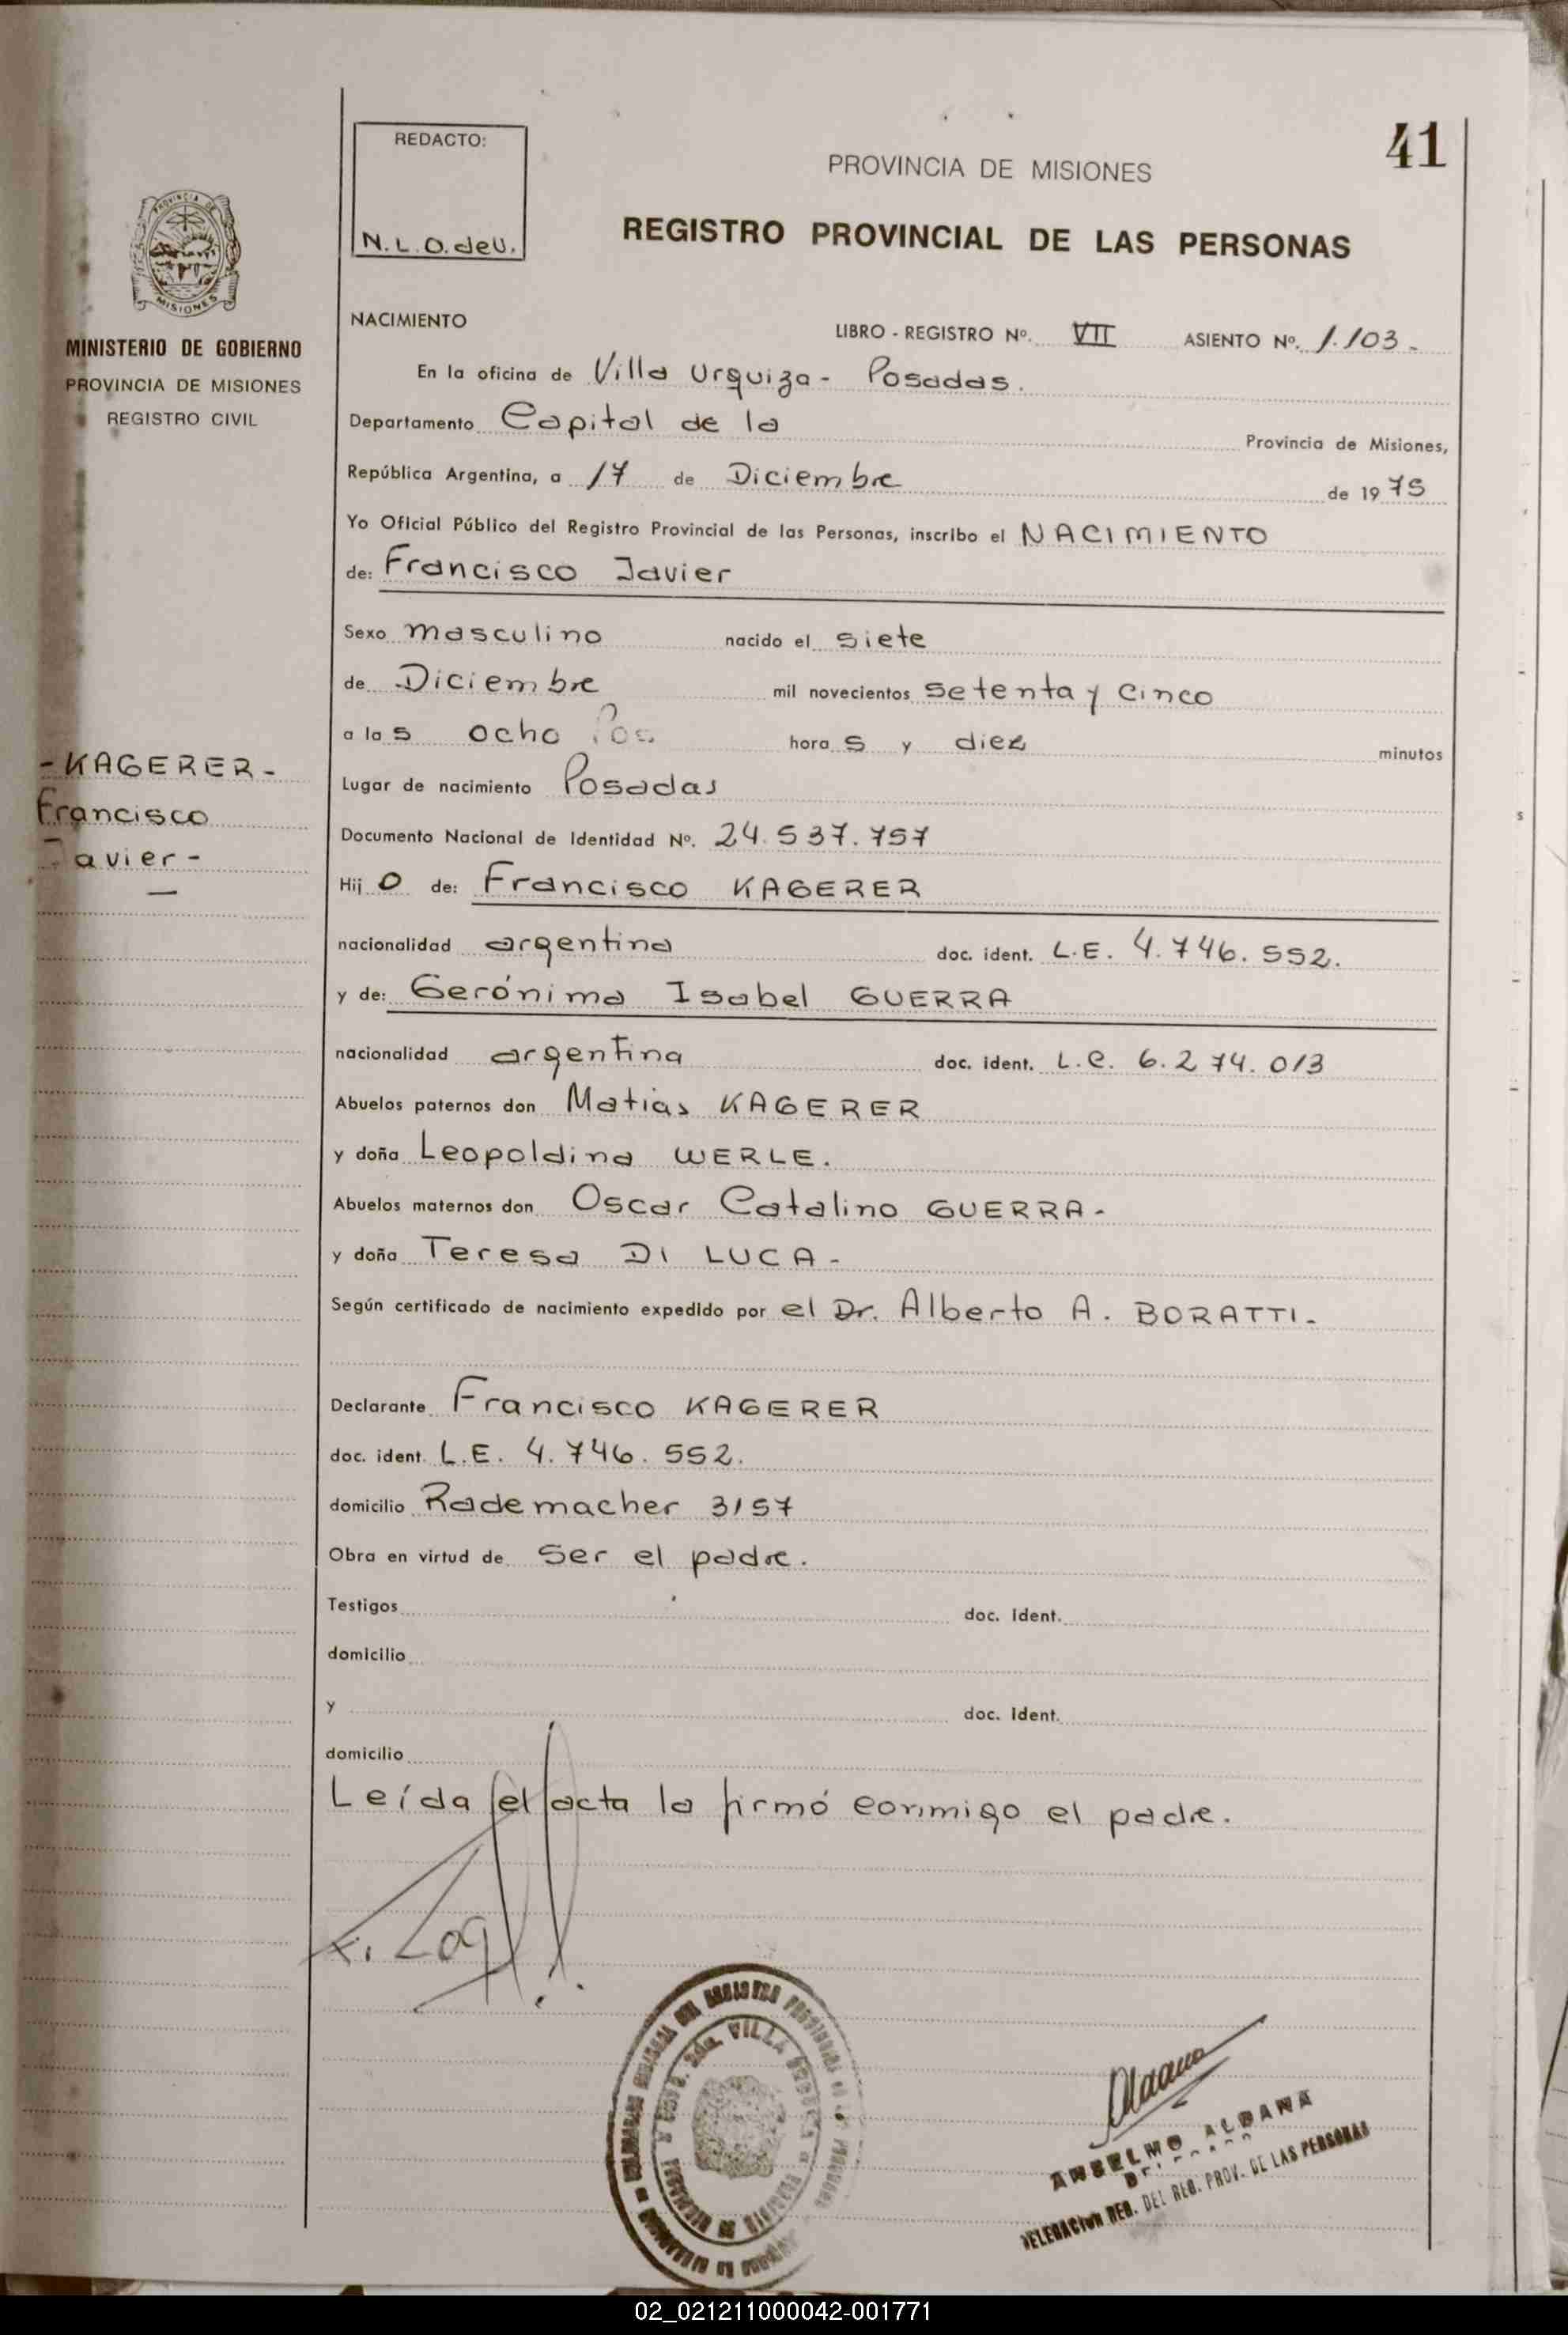 41
REDACTO:
N.L.O.deU.
PROVINCIA DE MISIONES
REGISTRO PROVINCIAL DE LAS PERSONAS
PROVINCIA DE
MISIONES
MINISTERIO DE GOBIERNO
PROVINCIA DE MISIONES
REGISTRO CIVIL
- KAGERER -
Francisco
Javier -
NACIMIENTO
LIBRO - REGISTRO Nº. VII ASIENTO Nº. 1.103 -
En la oficina de Villa Urquiza - Posadas.
Departamento Capital de la Provincia de Misiones,
República Argentina, a 17 de Diciembre de 1975
Yo Oficial Público del Registro Provincial de las Personas, inscribo el NACIMIENTO
de: Francisco Javier
Sexo masculino nacido el siete
de Diciembre mil novecientos setenta y cinco
a las ocho hora s y diez minutos
Lugar de nacimiento Posadas
Documento Nacional de Identidad Nº. 24.537.757
Hij o de: Francisco KAGERER
nacionalidad argentina doc. ident. L.E. 4.746.552.
y de: Gerónima Isabel GUERRA
nacionalidad argentina doc. ident. L.C. 6.274.013
Abuelos paternos don Matias KAGERER
y doña Leopoldina WERLE.
Abuelos maternos don Oscar Catalino GUERRA -
y doña Teresa DI LUCA -
Según certificado de nacimiento expedido por el Dr. Alberto A. BORATTI -
Declarante Francisco KAGERER
doc. ident. L.E. 4.746.552.
domicilio Rademacher 3157
Obra en virtud de ser el padre.
Testigos doc. ident.
domicilio
y doc. ident.
domicilio
Leída el acta la firmó conmigo el padre.
VILLA
ANSELMO ALDANA
DELEGACION REG. DEL REG. PROV. DE LAS PERSONAS
02_021211000042-001771